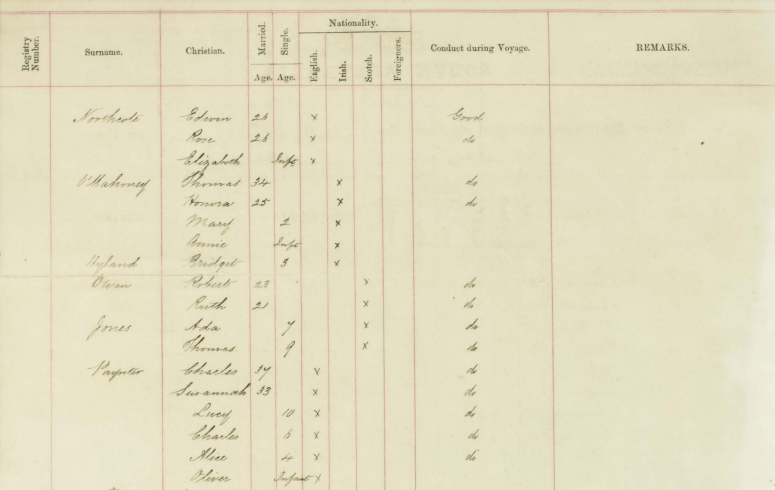 Registry Number. Surname. Christian. Married. Age. Single. Age. Nationality. English. Irish. Scotch. Foreigners. Conduct during Voyage. REMARKS.
Northcote Edwin x Good
Rose x do
Elizabeth Inft x
O'Mahoney Thomas 34 x do
Honora 25 x do
Mary 2 x
Annie Inft x
Hyland Bridget 3 x
Owen Robert 23 x do
Ruth 21 x do
Jones Ada 7 x do
Thomas 9 x do
Paynter Charles 37 x do
Susannah 33 x do
Lucy 10 x do
Charles x do
Alice 4 x do
Oliver Infant x